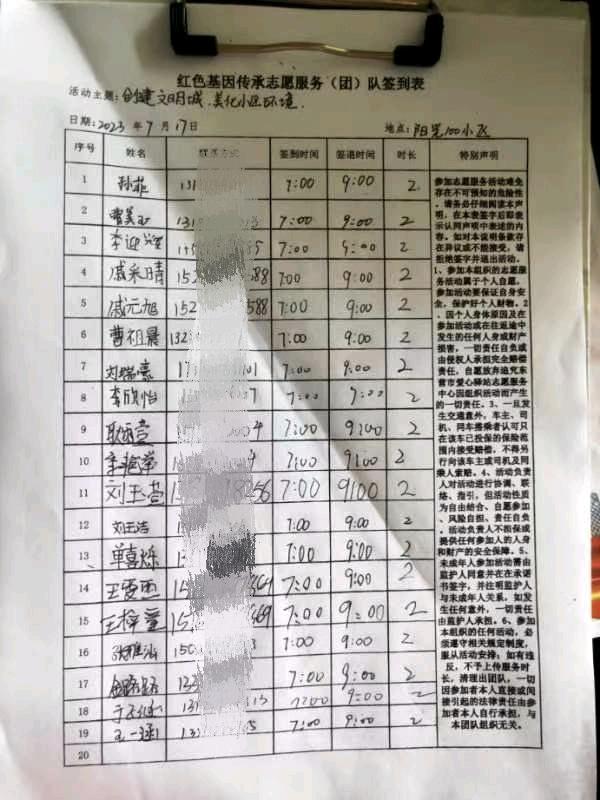 红色基因传承志愿服务（团）队签到表
活动主题：创建文明城.美化小区环境.
日期：2023 年 7 月 17日 地点：阳光100小区
序号 姓名 联系方式 签到时间 签退时间 时长 特别声明
1 孙菲 131 7:00 9:00 2
2 曹美玉 131 7:00 9:00 2
3 李迎 7:00 9:00 2
4 戚采晴 152 588 7:00 9:00 2
5 戚元旭 152 588 7:00 9:00 2
6 曹祖晨 132 7:00 9:00 2
7 刘瑞熹 101 7:00 9:00 2
8 李欣怡 7:00 9:00 2
9 7:00 9:00 2
10 7:00 9:00 2
11 刘玉莹 18256 7:00 9:00 2
12 刘玉洁 7:00 9:00 2
13 单喜烁 7:00 9:00 2
14 王雯雨 7:00 9:00 2
15 王梓童 369 7:00 9:00 2
16 150 7:00 9:00 2
17 7:00 9:00 2
18 7:00 9:00 2
19 王一涵 7:00 9:00 2
20
参加志愿服务活动难免
存在不可预知的危险性
，请务必仔细阅读本声
明，在本表签字后即表
示认同声明中表述的内
容。如对本说明条款存
在异议或不能接受，请
拒绝签字并退出活动。
1、参加本组织的志愿服
务活动属于个人自愿。
参加活动要保证自身安
全、保护好个人财物。2
、因个人身体原因及在
参加活动或在往返途中
发生的任何人身或财产
损害，一切责任自负或
由侵权人承担完全赔偿
责任，自愿放弃追究东
营市爱心驿站志愿服务
中心因组织活动而产生
的一切责任。3、一旦发
生交通意外，车主、司
机、同车搭乘者认可只
在该车已投保的保险范
围内接受赔偿，不得另
行向该车主或司机及同
乘人索赔。4、活动负责
人对活动进行协调、联
络、指引，但活动性质
为自由结合、自愿参加
、风险自担、责任自负。
活动负责人不担保或
提供任何参加人的人身
和财产的安全保障。5、
未成年人参加活动需由
监护人同意并在在承诺
书签字，并注明监护人
与未成年人关系，如发
生任何意外，一切责任
由监护人承担。6、参加
本组织的任何活动，必
须遵守相关规定制度，
服从活动安排；如有违
反，不予上传服务时
长，清理出团队，一切
因参加者本人直接或间
接引起的法律责任由参
加者本人自行承担，与
本团队组织无关。